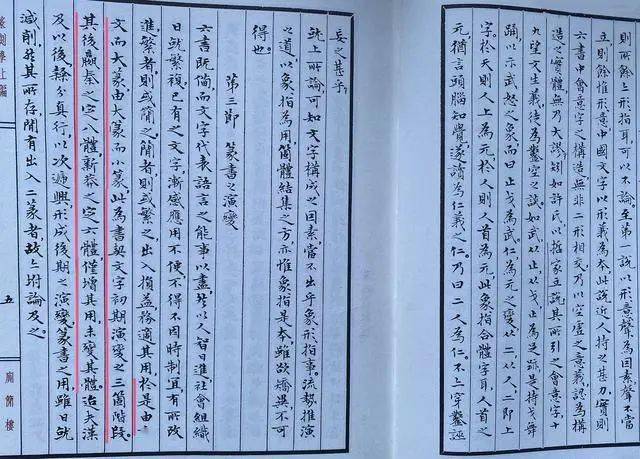 則所餘之形指可以不論至第一說以形意聲為因素聲不當
立則餘惟形意中國文字以形義為本此說近人持之甚力實則
六書中會意字之構造無非二形相交乃以空虛之意義認為構
造之實體無乃大謬矧如許氏以推家主說其所引之會意字十
九望文生義後為鑿空之談如武以止以戈止為足跡是持戈舞
踊以示武怒之象而曰止戈為武仁為元之變以二以人二即上
字於天則人上為元於人則人首為元此象指合體字耳人首之
元猶言頭腦知覺遂讀為仁義之仁乃曰二人為仁不上穿鑿誣
妄之甚乎
就上所論可知文字構成之因素當不出乎象形指事流勢推演
之道以象指為用箇體結集之方亦惟象指是本雖欲矯異不可
得也。
第三節 篆書之演變
六書既備而文字代表語言之能事以盡然以人智日進社會組織
日就繁複已有之文字漸感應用不便不得不因時制宜有所改
進繁者則或簡之簡者則或繁之出入損益務適其用於是由
文而大篆由大篆而小篆此為書契文字初期演變之三箇階段。
其後嬴秦之定八體新莽之定六體僅增其用未變其體迨夫漢
及以後隸分真行以次遞興形成後期之演變篆書之用雖日就
減削然其所存間有出入二篆者故上附論及之。
篆刻學上編
五
簡樓